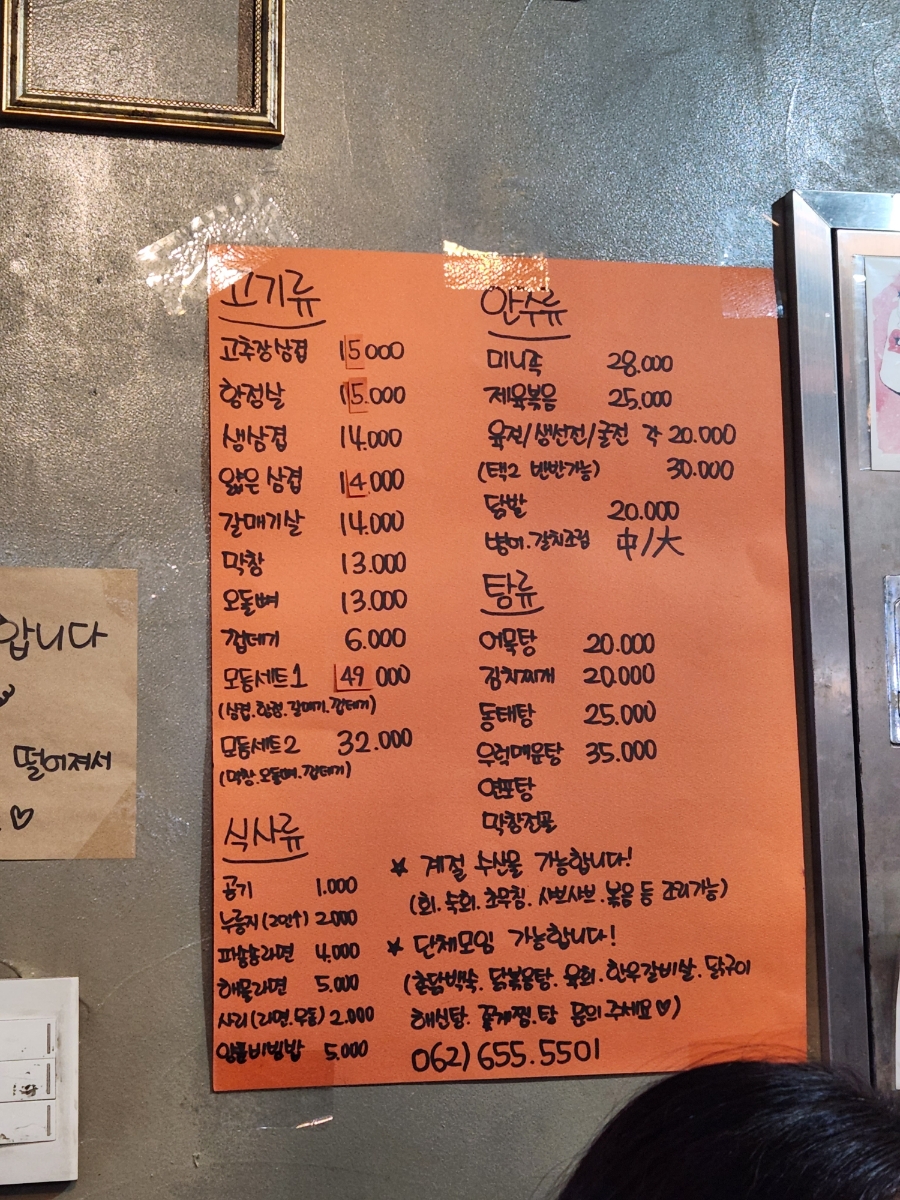 고기류
고추장삼겹 15000
항정살 15.000
생삼겹 14.000
얇은삼겹 14.000
갈매기살 14.000
막창 13.000
오돌뼈 13.000
껍데기 6.000
모둠세트1 49 000
(삼겹.항정.갈매기.껍데기)
모둠세트2 32.000
(막창.오돌뼈.껍데기)
식사류
공기 1.000
누룽지(2인↑) 2.000
파송송라면 4.000
해물라면 5.000
사리(라면.우동) 2.000
비빔밥 5.000
안주류
미니족 28.000
제육볶음 25.000
육전/생선전/굴전 각 20.000
(택2 반반가능) 30.000
닭발 20.000
병어.갈치조림 中/大
탕류
어묵탕 20.000
김치찌개 20.000
동태탕 25.000
우럭매운탕 35.000
연포탕
막창전골
★ 계절 수산물 가능합니다!
(회.숙회.초무침.샤브샤브.볶음 등 조리가능)
★ 단체모임 가능합니다!
(촌닭백숙.닭볶음탕.육회.한우갈비살.닭구이
해신탕.꽃게찜.탕 문의주세요♡)
062)655.5501
합니다
떨어져서
♡